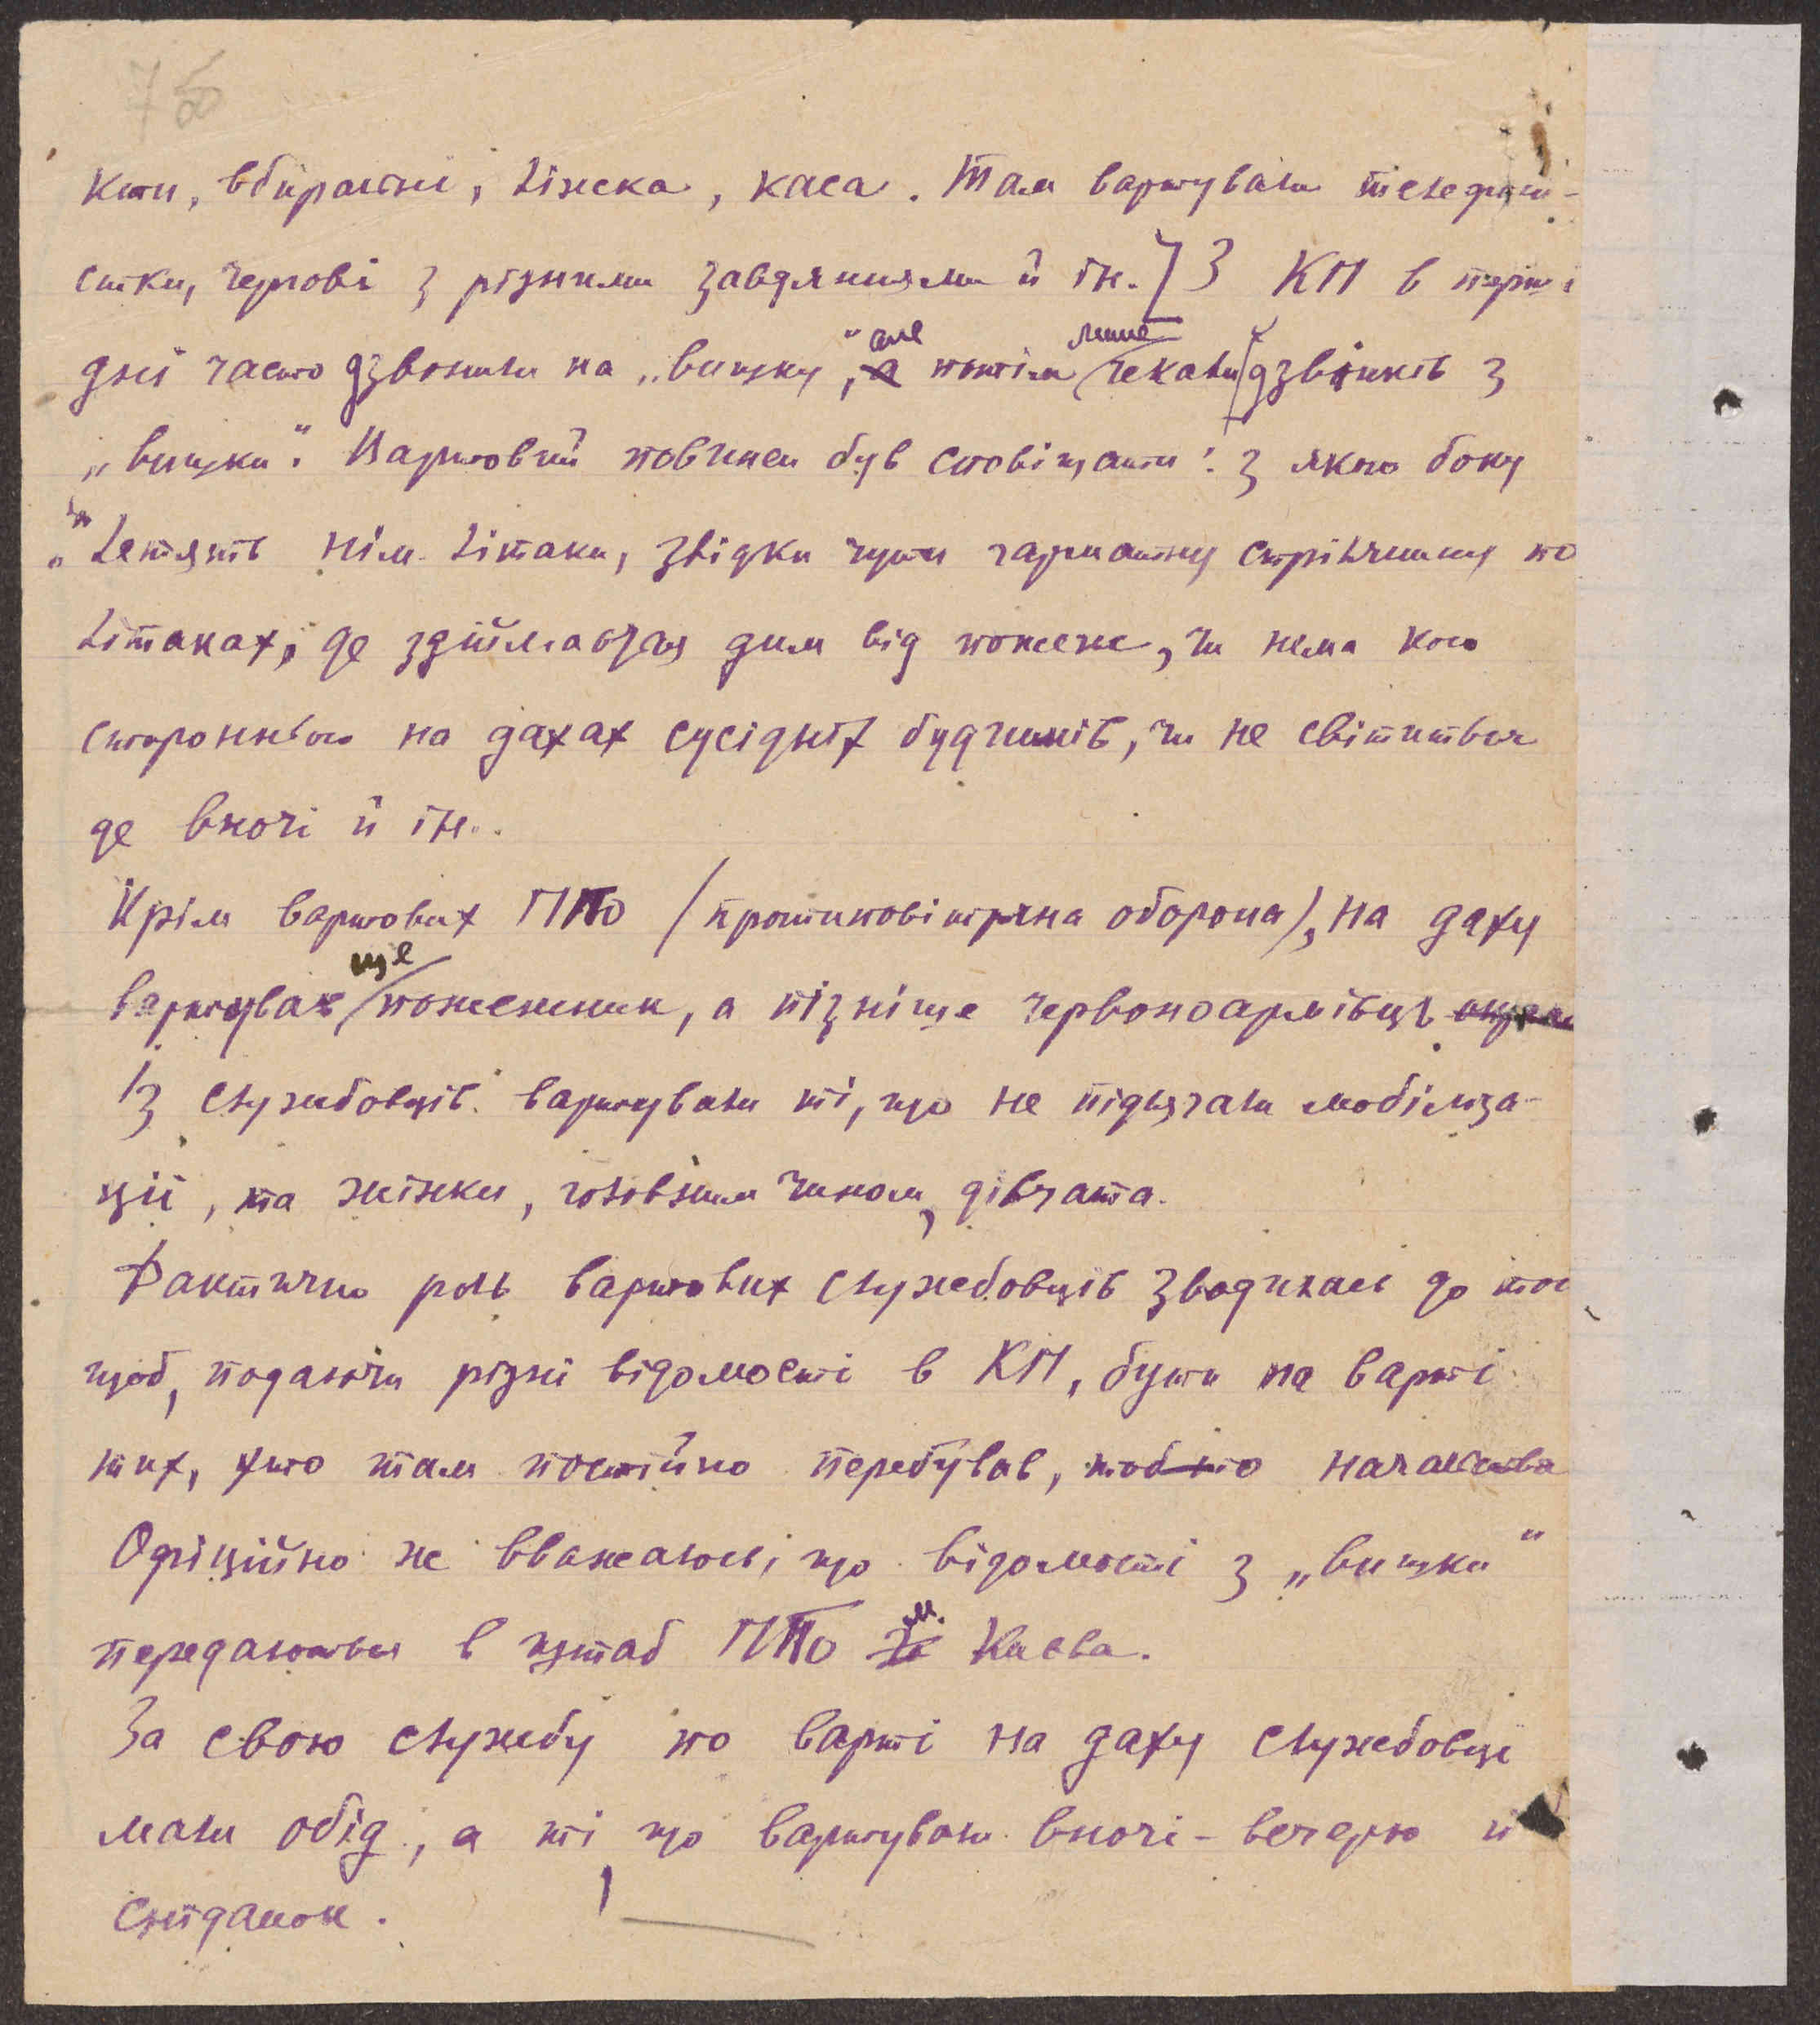 7б
кти, вбиральні, ліжка, каса. Там вартували телефоні-
стки, чергові з різними завданнями й ін.] З КП в перші
дні часто дзвонили на „вишку“, але потім лише чекали дзвінків з
„вишки“. Вартовий повинен був сповіщати: з якого боку
летять нім. літаки, звідки чути гарматну стрілянину по
літаках, де здіймається дим від пожеж, чи нема кого
стороннього на дахах сусідніх будинків, чи не світиться
де вночі й ін.
Крім вартових ППО (протиповітряна оборона), на даху
вартував ще пожежник, а пізніше червоноармієць
Із службовців вартували ті, що не підлягали мобіліза-
ції, та жінки, головним чином, дівчата.
Фактично роль вартових службовців зводилась до того
щоб, подаючи різні відомості в КП, бути на варті
тих, хто там постійно перебував, тобто начальства
Офіційно ж вважалось, що відомості з „вишки“
передаються в штаб ППО м. Києва.
За свою службу по варті на даху службовці
мали обід, а ті, що вартували вночі - вечерю й
сніданок.